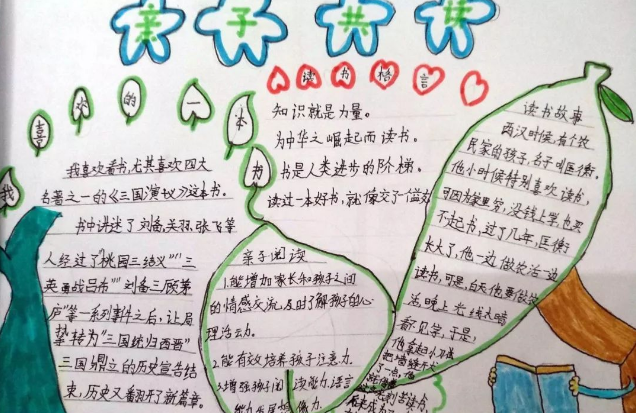 亲子共读
我喜欢的一本书
我喜欢看书,尤其喜欢四大
名著之一的《三国演义》这本书。
书中讲述了刘备,关羽,张飞等
人经过了"桃园三结义""三
英画战吕布""刘备三顾茅
庐"等一系列事件之后,让局
势转为"三国统归西晋"
三国鼎立的历史宣告结
束,历史又翻开了新篇章。
读书格言
知识就是力量。
为中华之崛起而读书。
书是人类进步的阶梯。
读过一本好书,就像交了一个益友
亲子阅读
1.能增加家长和孩子之间
的情感交流,及时了解孩子的心
理活动。
2.能有效培养孩子注意力
3.增强孩子阅读能力,语言
读书故事
西汉时候,有个农
民家的孩子,名子叫匡衡。
他小时候特别喜欢读书,
可因为家里穷,没钱上学,也买
不起书,过了几年,匡衡
长大了,他一边做农活一边
读书,可是,白天他要做农
活,晚上光线太暗
看不见字,于是,
他拿起小刀